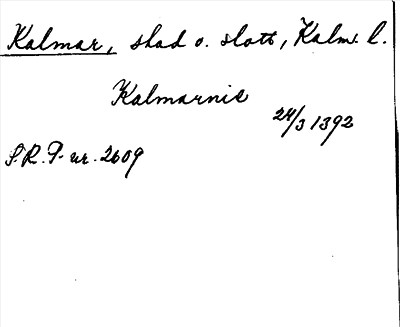 Kalmar, stad o. slott, Kalm. l.
Kalmarnie
24/3 1392
S.R.P. nr. 2609